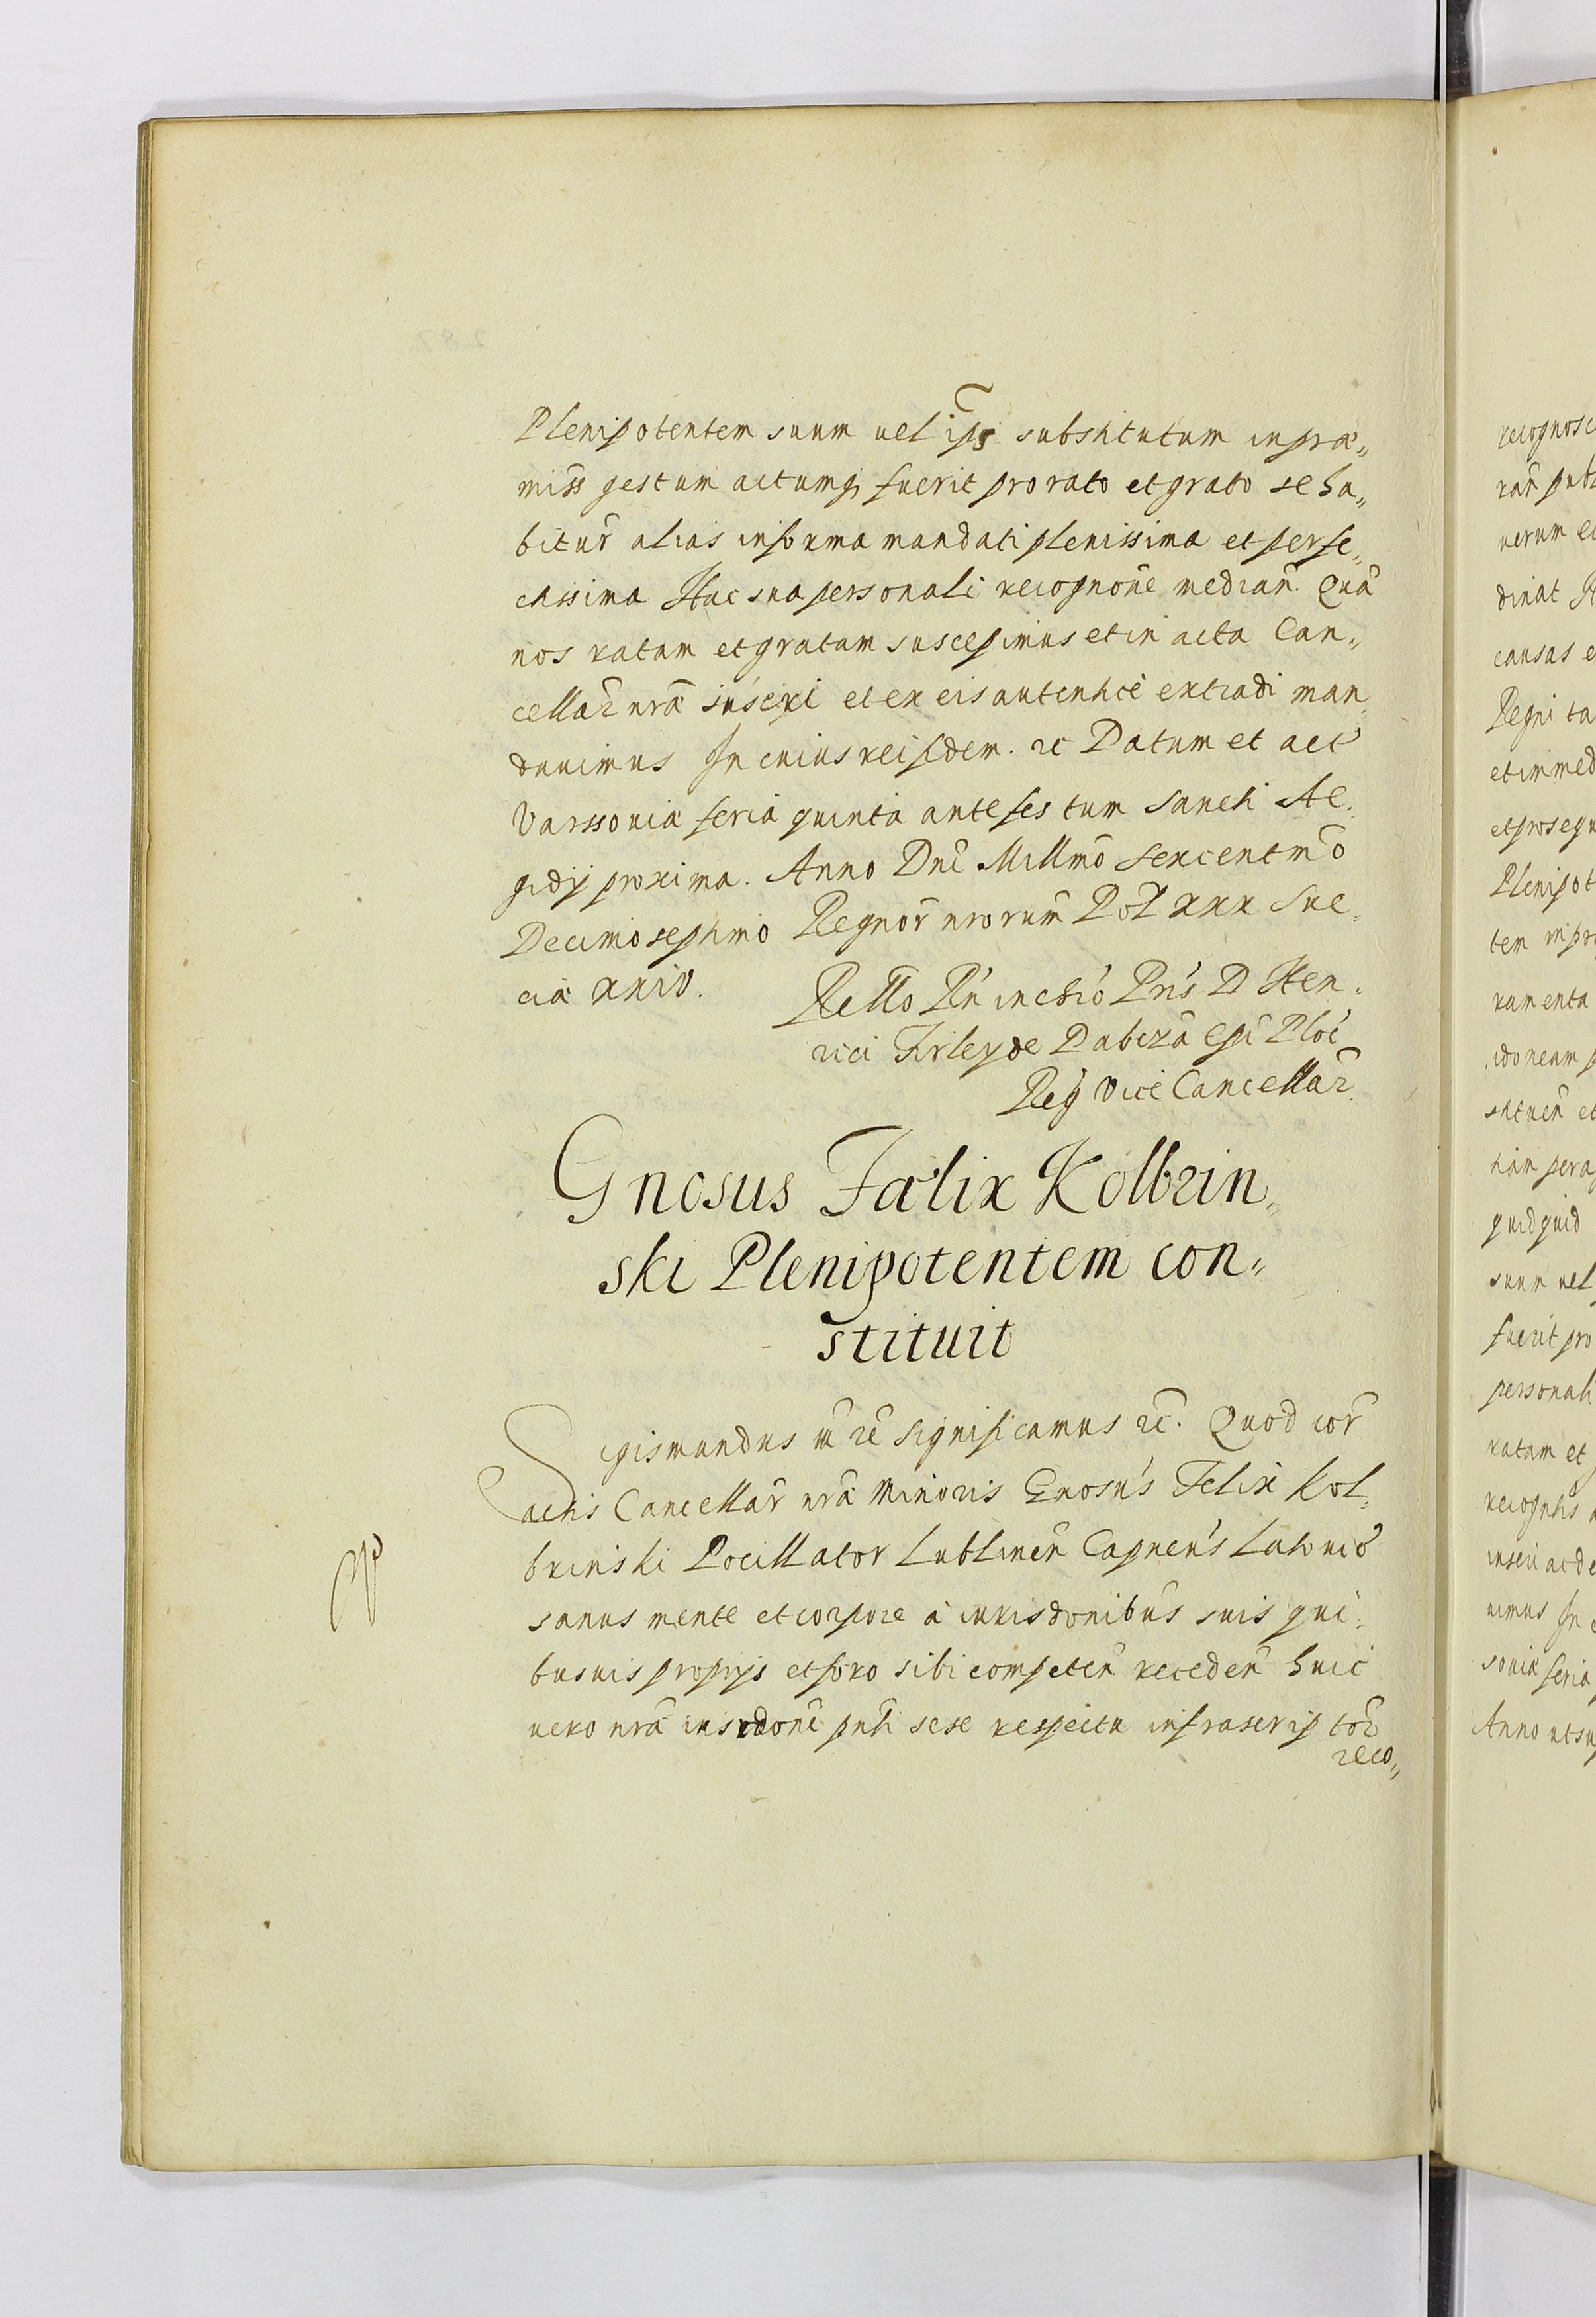 Plenipotentem suum uel ips substitutum in præ„
miss gestum actumq fuerit pro rato et grato se ha„
bitur alias in forma mandati plenissima et perfe„
ctissima Hac sua personali recognone median. Qua
nos ratam et gratam suscepimus et in acta Can„
cellar nra inseri et ex eis autentice extradi man„
dauimus In cuius rei fidem. rc Datum et act
Varssouiæ feria quinta ante festum Sancti Ae„
gidy proxima. Anno Dni Millmo Sexcentmo
Decimo septimo Regnor nrorum Pol xxx Sue„
ciæ xxiv.
Rello Rn in chro Pris D Hen„
rici Firley de Dabrza Epi Ploc
Reg Vice Cancellar
Gnosus Fælix Kolbrin„
ski Plenipotentem con„
stituit
Sigismundus III rc Significamus rc. Quod cor
actis Cancellar nra Minoris Gnosus Felix Kol„
brinski Pocillator Lublinen Capneus Latouic
sanus mente et corpore a iurisdonibus suis qui„
busuis proprys et foro sibi competen receden huic
uero nra iusrdoni pnti sese respectu infrascriptor
reco„
recognosc
ran pub
uerum e
dinat
causas e
Regni ta
et immed
et prosequ
Plenipot
tem in pr
ramenta
idoneam p
stituen et
tiam perag
quidquid
suum uel
fuerit pro
personali
ratam et
recogntis
inseri ac de
uimus In
souiæ feria
Anno ut su